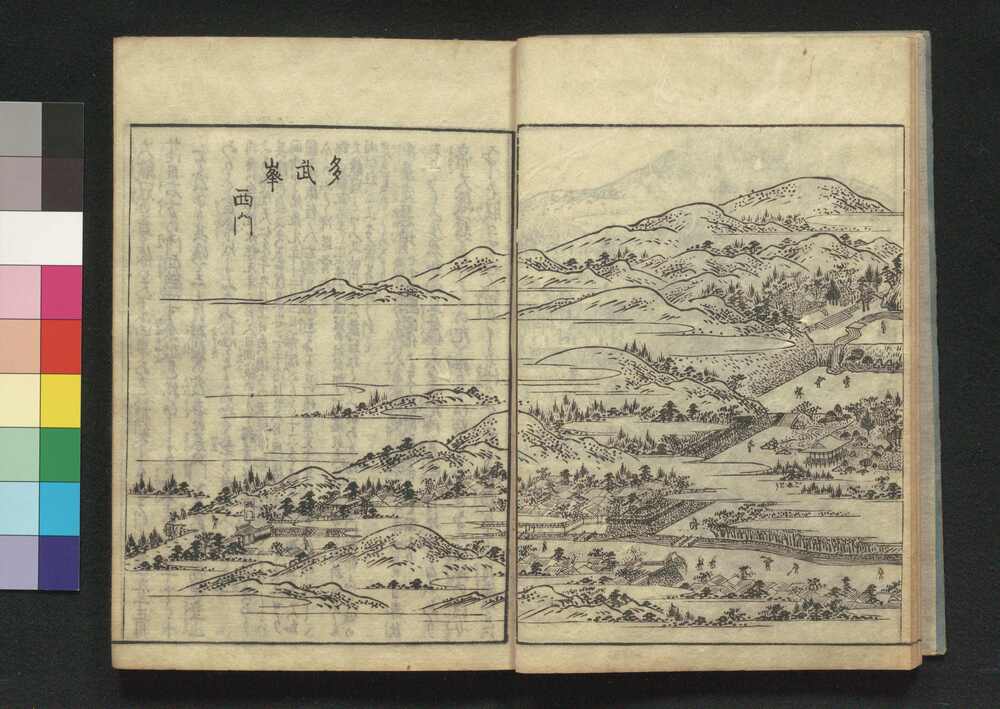 多武峯
西門